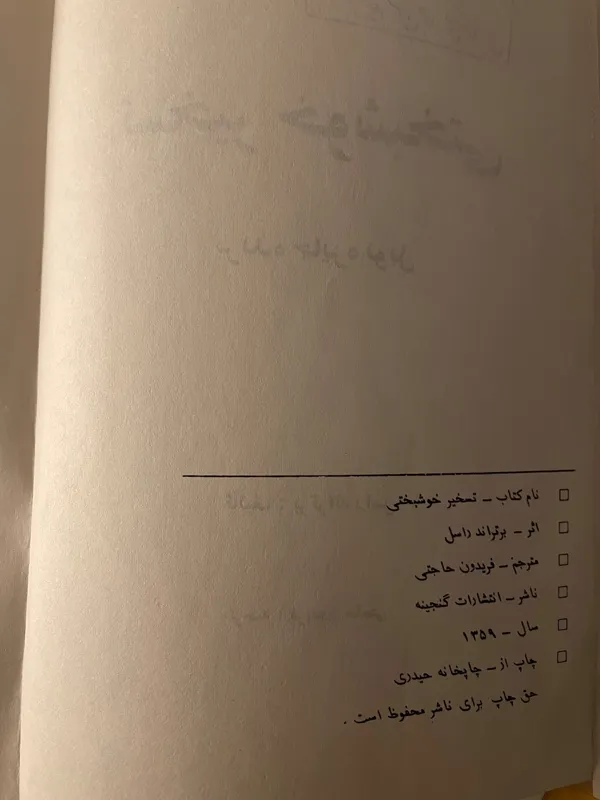 نام کتاب ـ تسخیر خوشبختی
اثر ـ برتراند راسل
مترجم ـ فریدون حاجتی
ناشر ـ انتشارات گنجینه
سال ـ ۱۳۵۹
چاپ از ـ چاپخانه حیدری
حق چاپ برای ناشر محفوظ است .